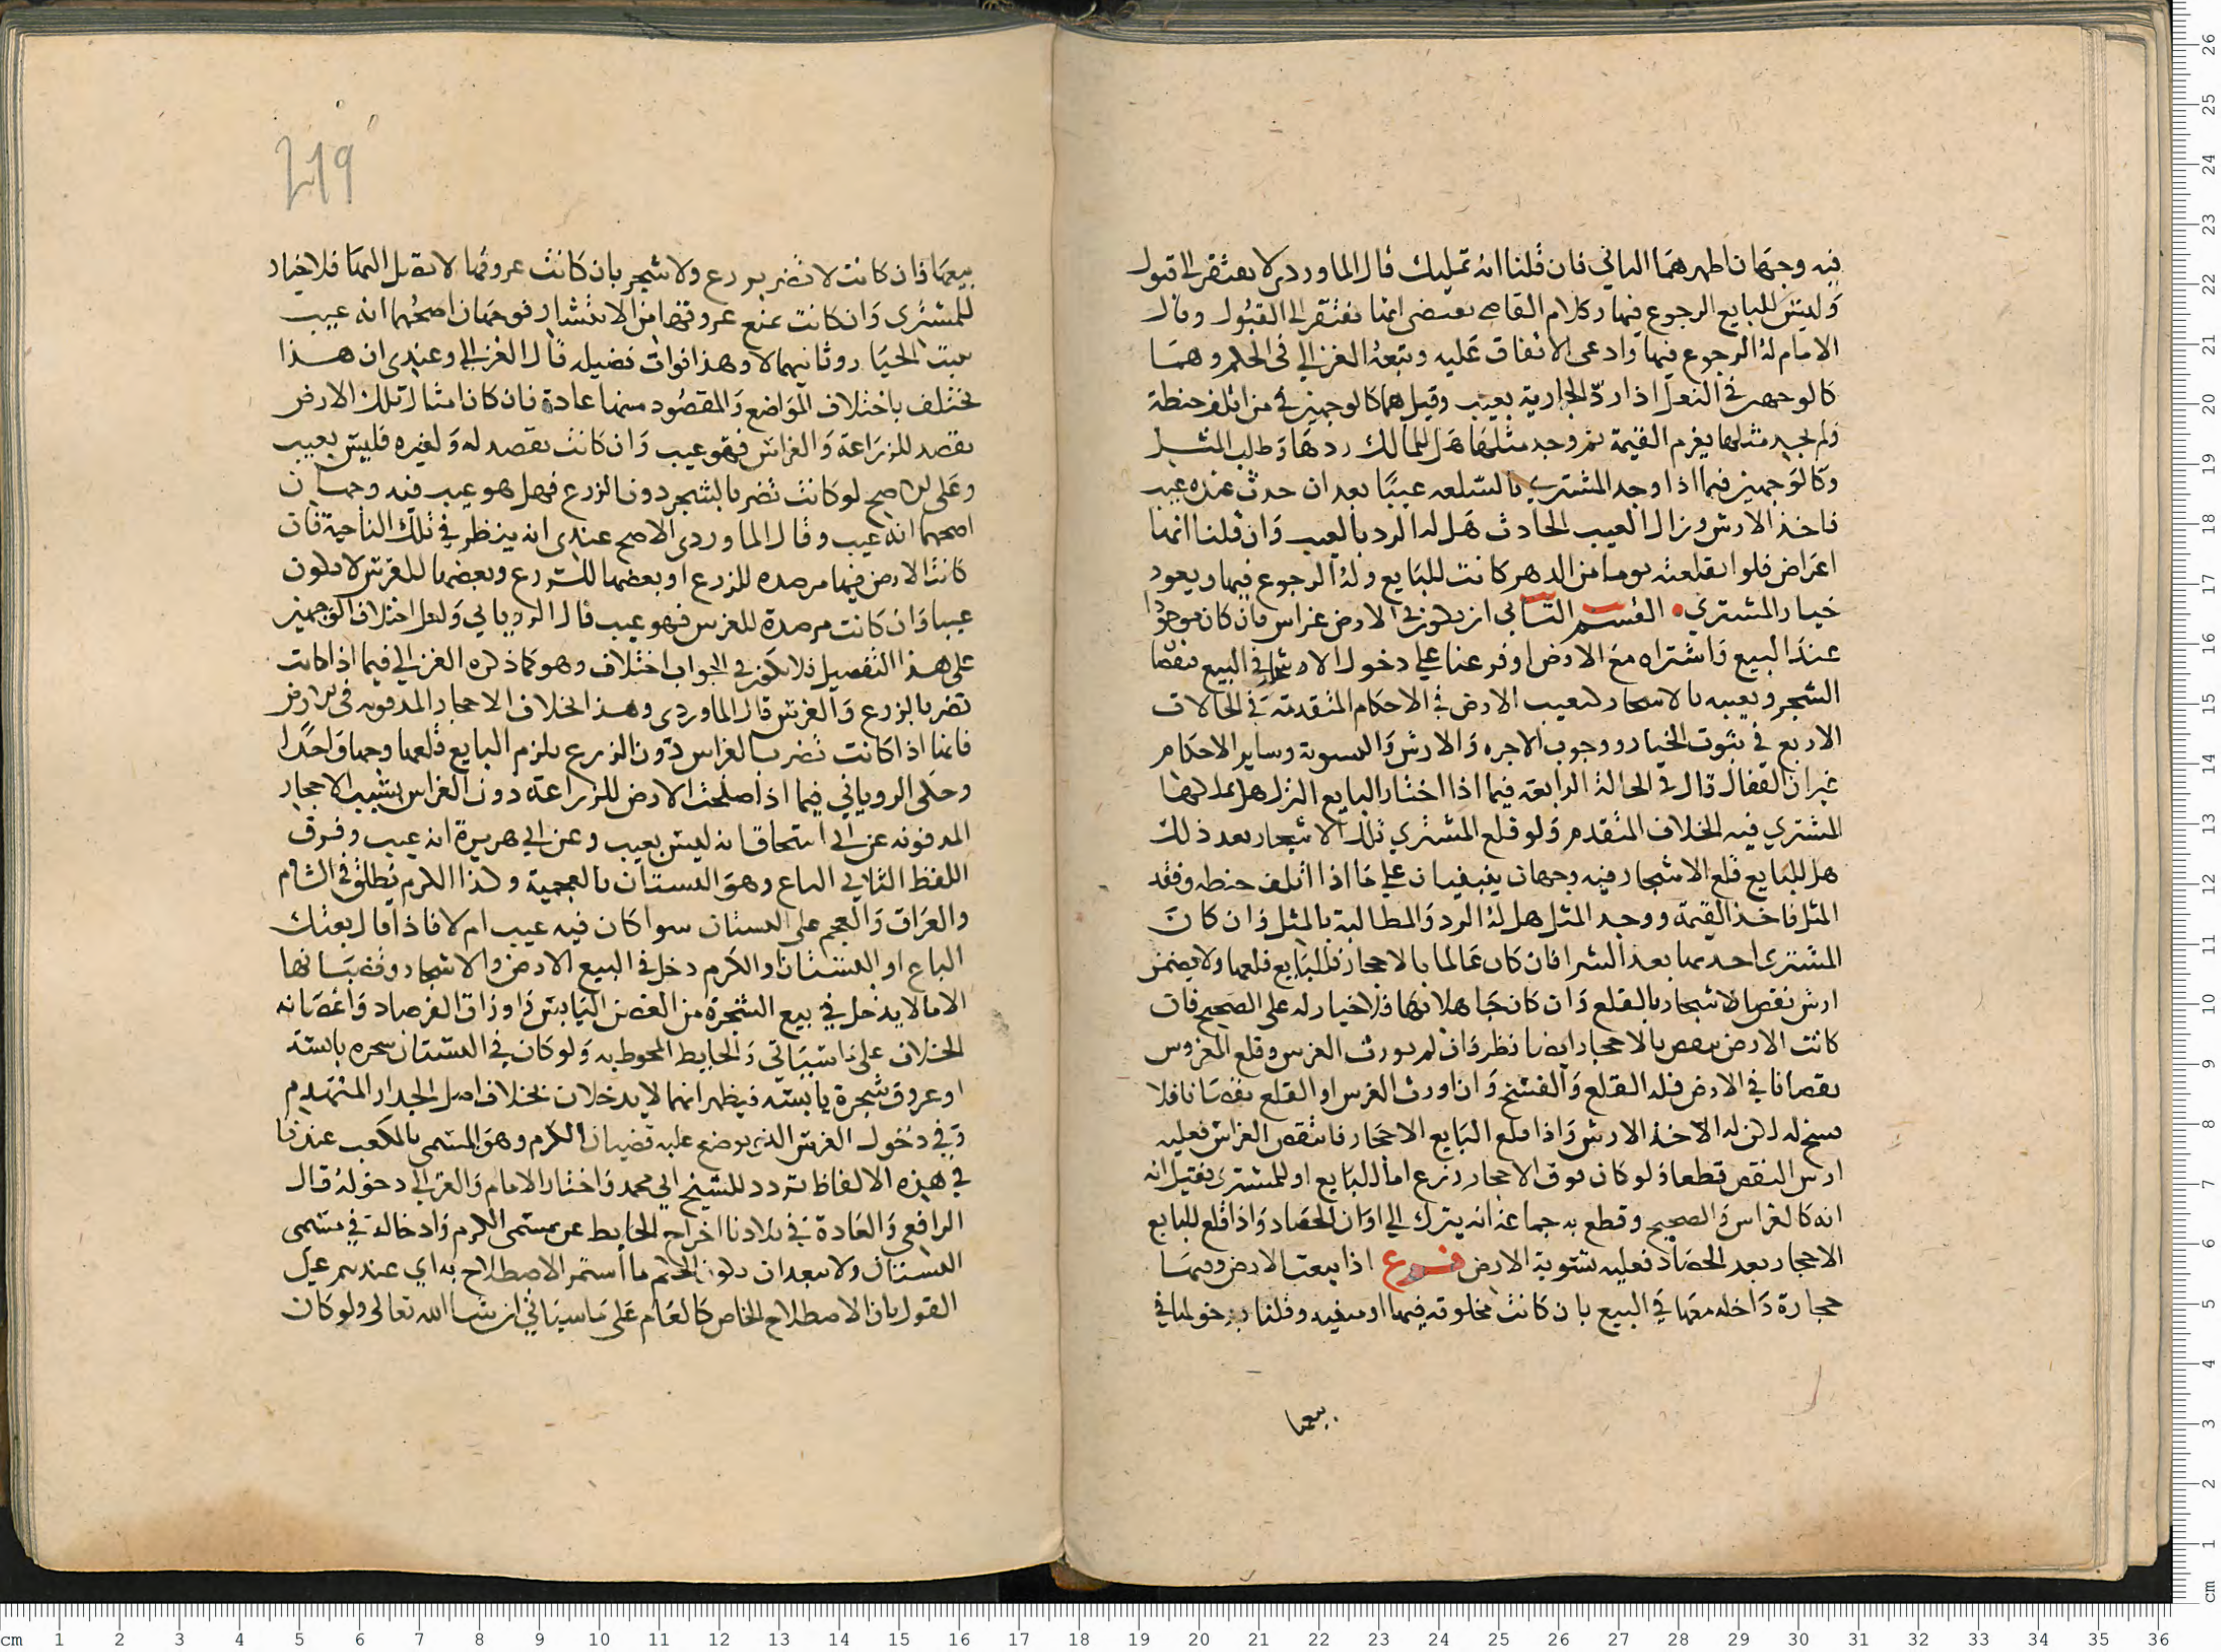 فيه وجهان اظهرهما الثاني فان قلنا انه تمليك قال الماوردي لا يفتقر الى قبول
وليس للبايع الرجوع فيها وكلام القاضي يقتضي انها تفتقر الى القبول وقال
الامام له الرجوع فيها وادعى الاتفاق عليه وتبعه الغزالي في الحكم وهما
كالوجهين في النعل اذا رد الجارية بعيب وقيل هما كالوجهين في من اتلف حنطة
ولم يجد مثلها يغرم القيمة ثم وجد مثلها هل للمالك ردها وطلب المثل
وكالوجهين فيما اذا وجد المشتري بالسلعه عيبا بعد ان حدث عنده عيب
فاخذ الارش وزال العيب الحادث هل له الرد بالعيب وان قلنا انها
اعراض فلو انقلعت يوما من الدهر كانت للبايع وله الرجوع فيها ويعود
خيار المشتري • القسم الثاني ان يكون في الارض غراس فان كان موجودا
عند البيع واشتراه مع الارض او فرعنا على دخول الاشجار في البيع فنقص
الشجر وتعيبه بالاحجار كتعيب الارض في الاحكام المتقدمة في الحالات
الاربع في ثبوت الخيار ووجوب الاجره والارش والتسويه وساير الاحكام
غير ان القفال قال في الحالة الرابعة فيما اذا اختار البايع الترك هل يملكها
المشتري فيه الخلاف المتقدم ولو قلع المشتري تلك الاشجار بعد ذلك
هل للبايع قلع الاشجار فيه وجهان ينبنيان على ما اذا اتلف حنطه وفقد
المثل فاخذ القيمة ووجد المثل هل له الرد والمطالبة بالمثل وان كان
المشتري احدثها بعد الشرا فان كان عالما بالاحجار فللبايع قلعها ولا يضمن
ارش نقص الاشجار بالقلع وان كان جاهلا بها فلا خيار له على الصحيح فان
كانت الارض تنقص بالاحجار ايضا نظر فان لم يورث الغرس وقلع المغروس
نقصانا في الارض فله القلع والفسخ وان اورث الغرس او القلع نقصانا فلا
فسخ له لكن له الاخذ الارش واذا قلع البايع الاحجار فانتقص الغراس فعليه
ارش النقص قطعا ولو كان فوق الاحجار زرع اما للبايع او للمشتري فقيل انه
انه كالغراس والصحيح وقطع به جماعة انه يترك الى اوان الحصاد واذا قلع للبايع
الاحجار بعد الحصاد فعليه تسوية الارض فرع اذا بيعت الارض وفيها
حجارة داخله معها في البيع بان كانت مخلوقه فيها او مبنيه وقلنا بدخولها في
بيعها
219
بيعها فان كانت لا تضر بزرع ولا شجر بان كانت عروقها لا تصل اليها فلا خيار
للمشتري وان كانت تمنع عروقها من الانتشار فوجهان اصحهما انه عيب
يثبت الخيار وثانيهما لا وهذا فوات فضيله قال الغزالي وعندي ان هذا
يختلف باختلاف المواضع والمقصود منها عادة فان كان امثال تلك الارض
تقصد للزراعة والغراس فهو عيب وان كانت تقصد له ولغيره فليس بعيب
وعلى الاصح لو كانت تضر بالشجر دون الزرع فهل هو عيب فيه وجهان
اصحهما انه عيب وقال الماوردي الاصح عندي انه ينظر في تلك الناحية فان
كانت الارض فيها مرصده للزرع او بعضها للزرع وبعضها للغرس لا يكون
عيبا وان كانت مرصدة للغرس فهو عيب قال الروياني ولعل اختلاف الوجهين
على هذا التفصيل فلا يكون في الجواب اختلاف وهو كما ذكره الغزالي فيما اذا كانت
تضر بالزرع والغرس قال الماوردي وهذا الخلاف الاحجار المدفونه في الارض
فانها اذا كانت تضر بالغراس دون الزرع يلزم البايع قلعها وجها واحدا
وحكى الروياني فيما اذا صلحت الارض للزراعة دون الغراس بسبب الاحجار
المدفونه عن ابي اسحاق انه ليس بعيب وعن ابي هريرة انه عيب وفرق
اللفظ الثاني الباغ وهو البستان بالعجمية وكذا الكرم يطلق في الشام
والعراق والعجم على البستان سوا كان فيه عيب ام لا فاذا قال بعتك
الباغ او البستان والكرم دخل في البيع الارض والاشجار وقضبانها
الا ما لا يدخل في بيع الشجرة من الغصن اليابس واوراق الفرصاد واغصانه
الخلاف على ما سياتي والحايط المحوط به ولو كان في البستان شجره يابسه
او عروق شجرة يابسه فيظهر انهما لا يدخلان بخلاف اصل الجدار المنهدم
وفي دخول العريش الذي يوضع عليه قضبان الكرم وهو المسمى بالمكعب عندنا
في هذه الالفاظ تردد للشيخ ابي محمد واختار الامام والغزالي دخوله قال
الرافعي والعادة في بلادنا اخراج الحايط عن مسمى الكرم وادخاله في مسمى
البستان ولا يبعد ان يكون الحكم ما استمر الاصطلاح به اي عندهم على
القول بان الاصطلاح الخاص كالعام على ما سياتي ان شا الله تعالى ولو كان